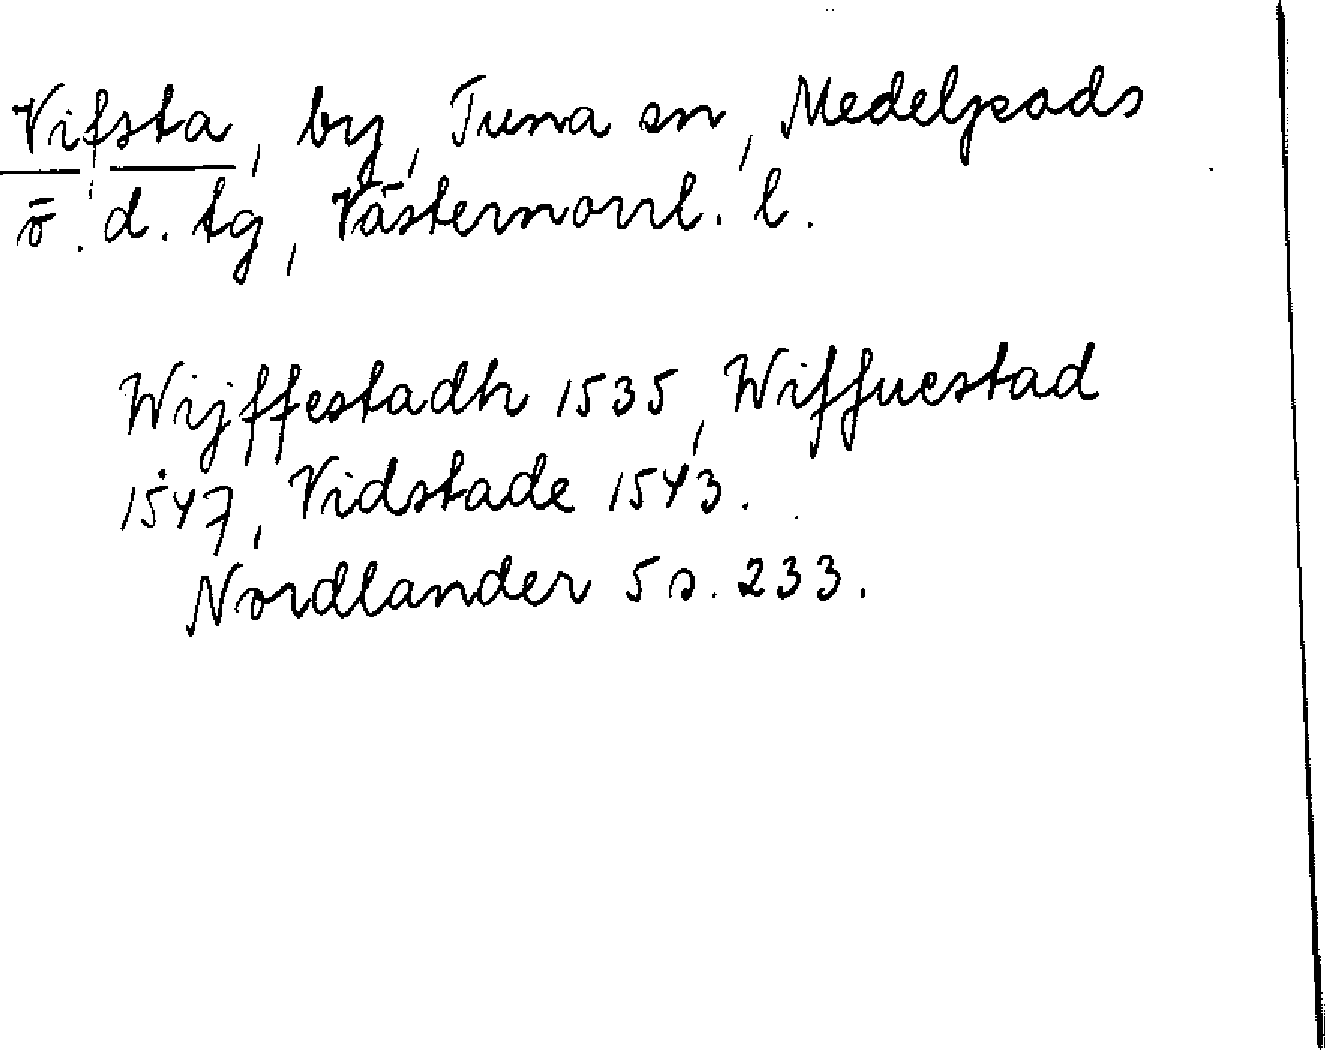 Vifsta, by, Tuna sn, Medelpads
ö. d. tg, Västernorrl. l.
Wijffestadh 1535, Wiffuestad
1547, Vidstade 1543.
Nordlander 5 s. 233.